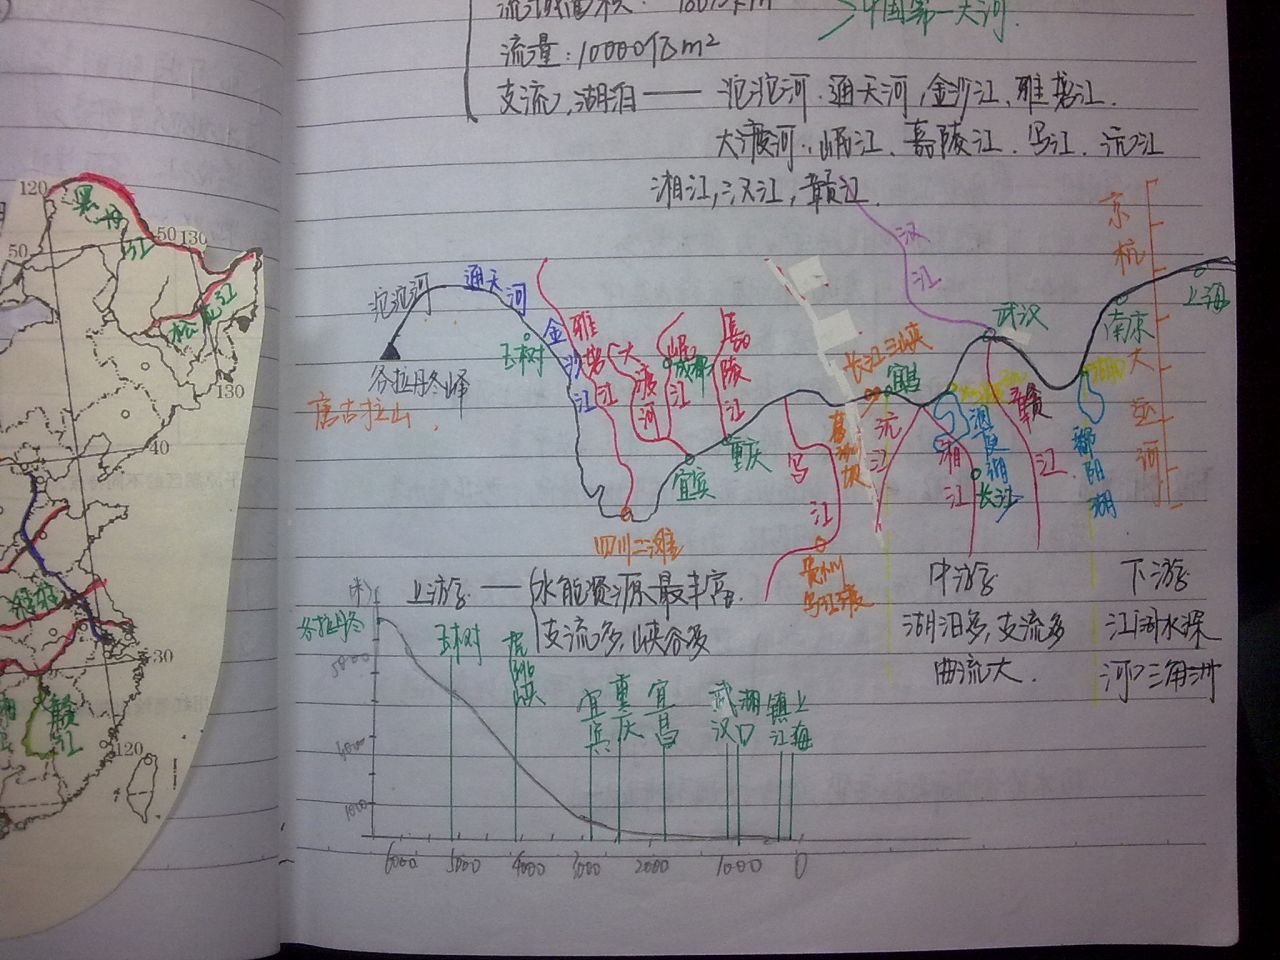 流域面积：180万km²
>中国第一大河.
流量：10000亿m²
支流，湖泊——沱沱河.通天河,金沙江,雅砻江.
大渡河.岷江、嘉陵江.乌江、沅江
湘江,汉江,赣江
汉江
京杭大运河
沱沱河
通天河
金沙江
雅砻江
大渡河
岷江
成都
嘉陵江
玉树
各拉丹冬峰
唐古拉山.
四川二滩
宜宾
重庆
乌江
贵州
长江三峡
宜昌
葛洲坝
沅江
洞庭湖
湘江
长江
武汉
赣江
湖口
鄱阳湖
南京
上海
上游——水能资源最丰富.
支流多,峡谷多
中游
湖泊多,支流多
曲流大.
下游
江阔水深
河口三角洲
(米)
各拉丹冬
玉树
虎跳峡
宜宾
重庆
宜昌
武汉
湖口
镇江
上海
1000
6000 5000 4000 3000 2000 1000 0
120
黑龙江
50 130
50
松花江
130
40
30
赣江
湘
120